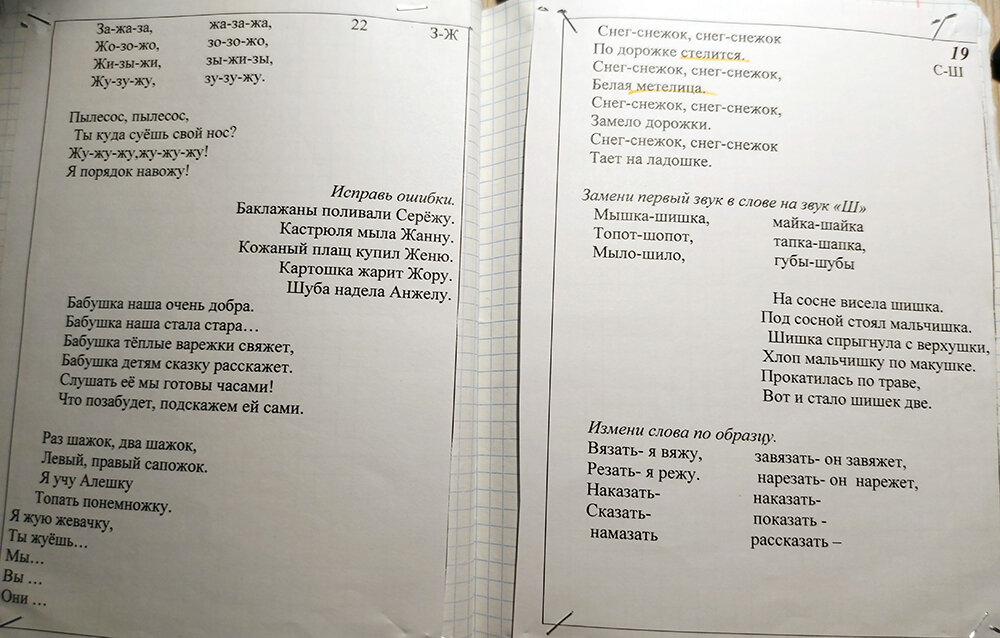 22
З-Ж
За-жа-за, жа-за-жа,
Жо-зо-жо, зо-зо-жо,
Жи-зы-жи, зы-жи-зы,
Жу-зу-жу, зу-зу-жу.
Пылесос, пылесос,
Ты куда суёшь свой нос?
Жу-жу-жу,жу-жу-жу!
Я порядок навожу!
Исправь ошибки.
Баклажаны поливали Серёжу.
Кастрюля мыла Жанну.
Кожаный плащ купил Женю.
Картошка жарит Жору.
Шуба надела Анжелу.
Бабушка наша очень добра.
Бабушка наша стала стара…
Бабушка тёплые варежки свяжет,
Бабушка детям сказку расскажет.
Слушать её мы готовы часами!
Что позабудет, подскажем ей сами.
Раз шажок, два шажок,
Левый, правый сапожок.
Я учу Алешку
Топать понемножку.
Я жую жевачку,
Ты жуёшь…
Мы…
Вы …
Они …
19
С-Ш
Снег-снежок, снег-снежок
По дорожке стелится.
Снег-снежок, снег-снежок,
Белая метелица.
Снег-снежок, снег-снежок,
Замело дорожки.
Снег-снежок, снег-снежок
Тает на ладошке.
Замени первый звук в слове на звук «Ш»
Мышка-шишка, майка-шайка
Топот-шопот, тапка-шапка,
Мыло-шило, губы-шубы
На сосне висела шишка.
Под сосной стоял мальчишка.
Шишка спрыгнула с верхушки,
Хлоп мальчишку по макушке.
Прокатилась по траве,
Вот и стало шишек две.
Измени слова по образцу.
Вязать- я вяжу, завязать- он завяжет,
Резать- я режу. нарезать- он нарежет,
Наказать- наказать-
Сказать- показать -
намазать рассказать –